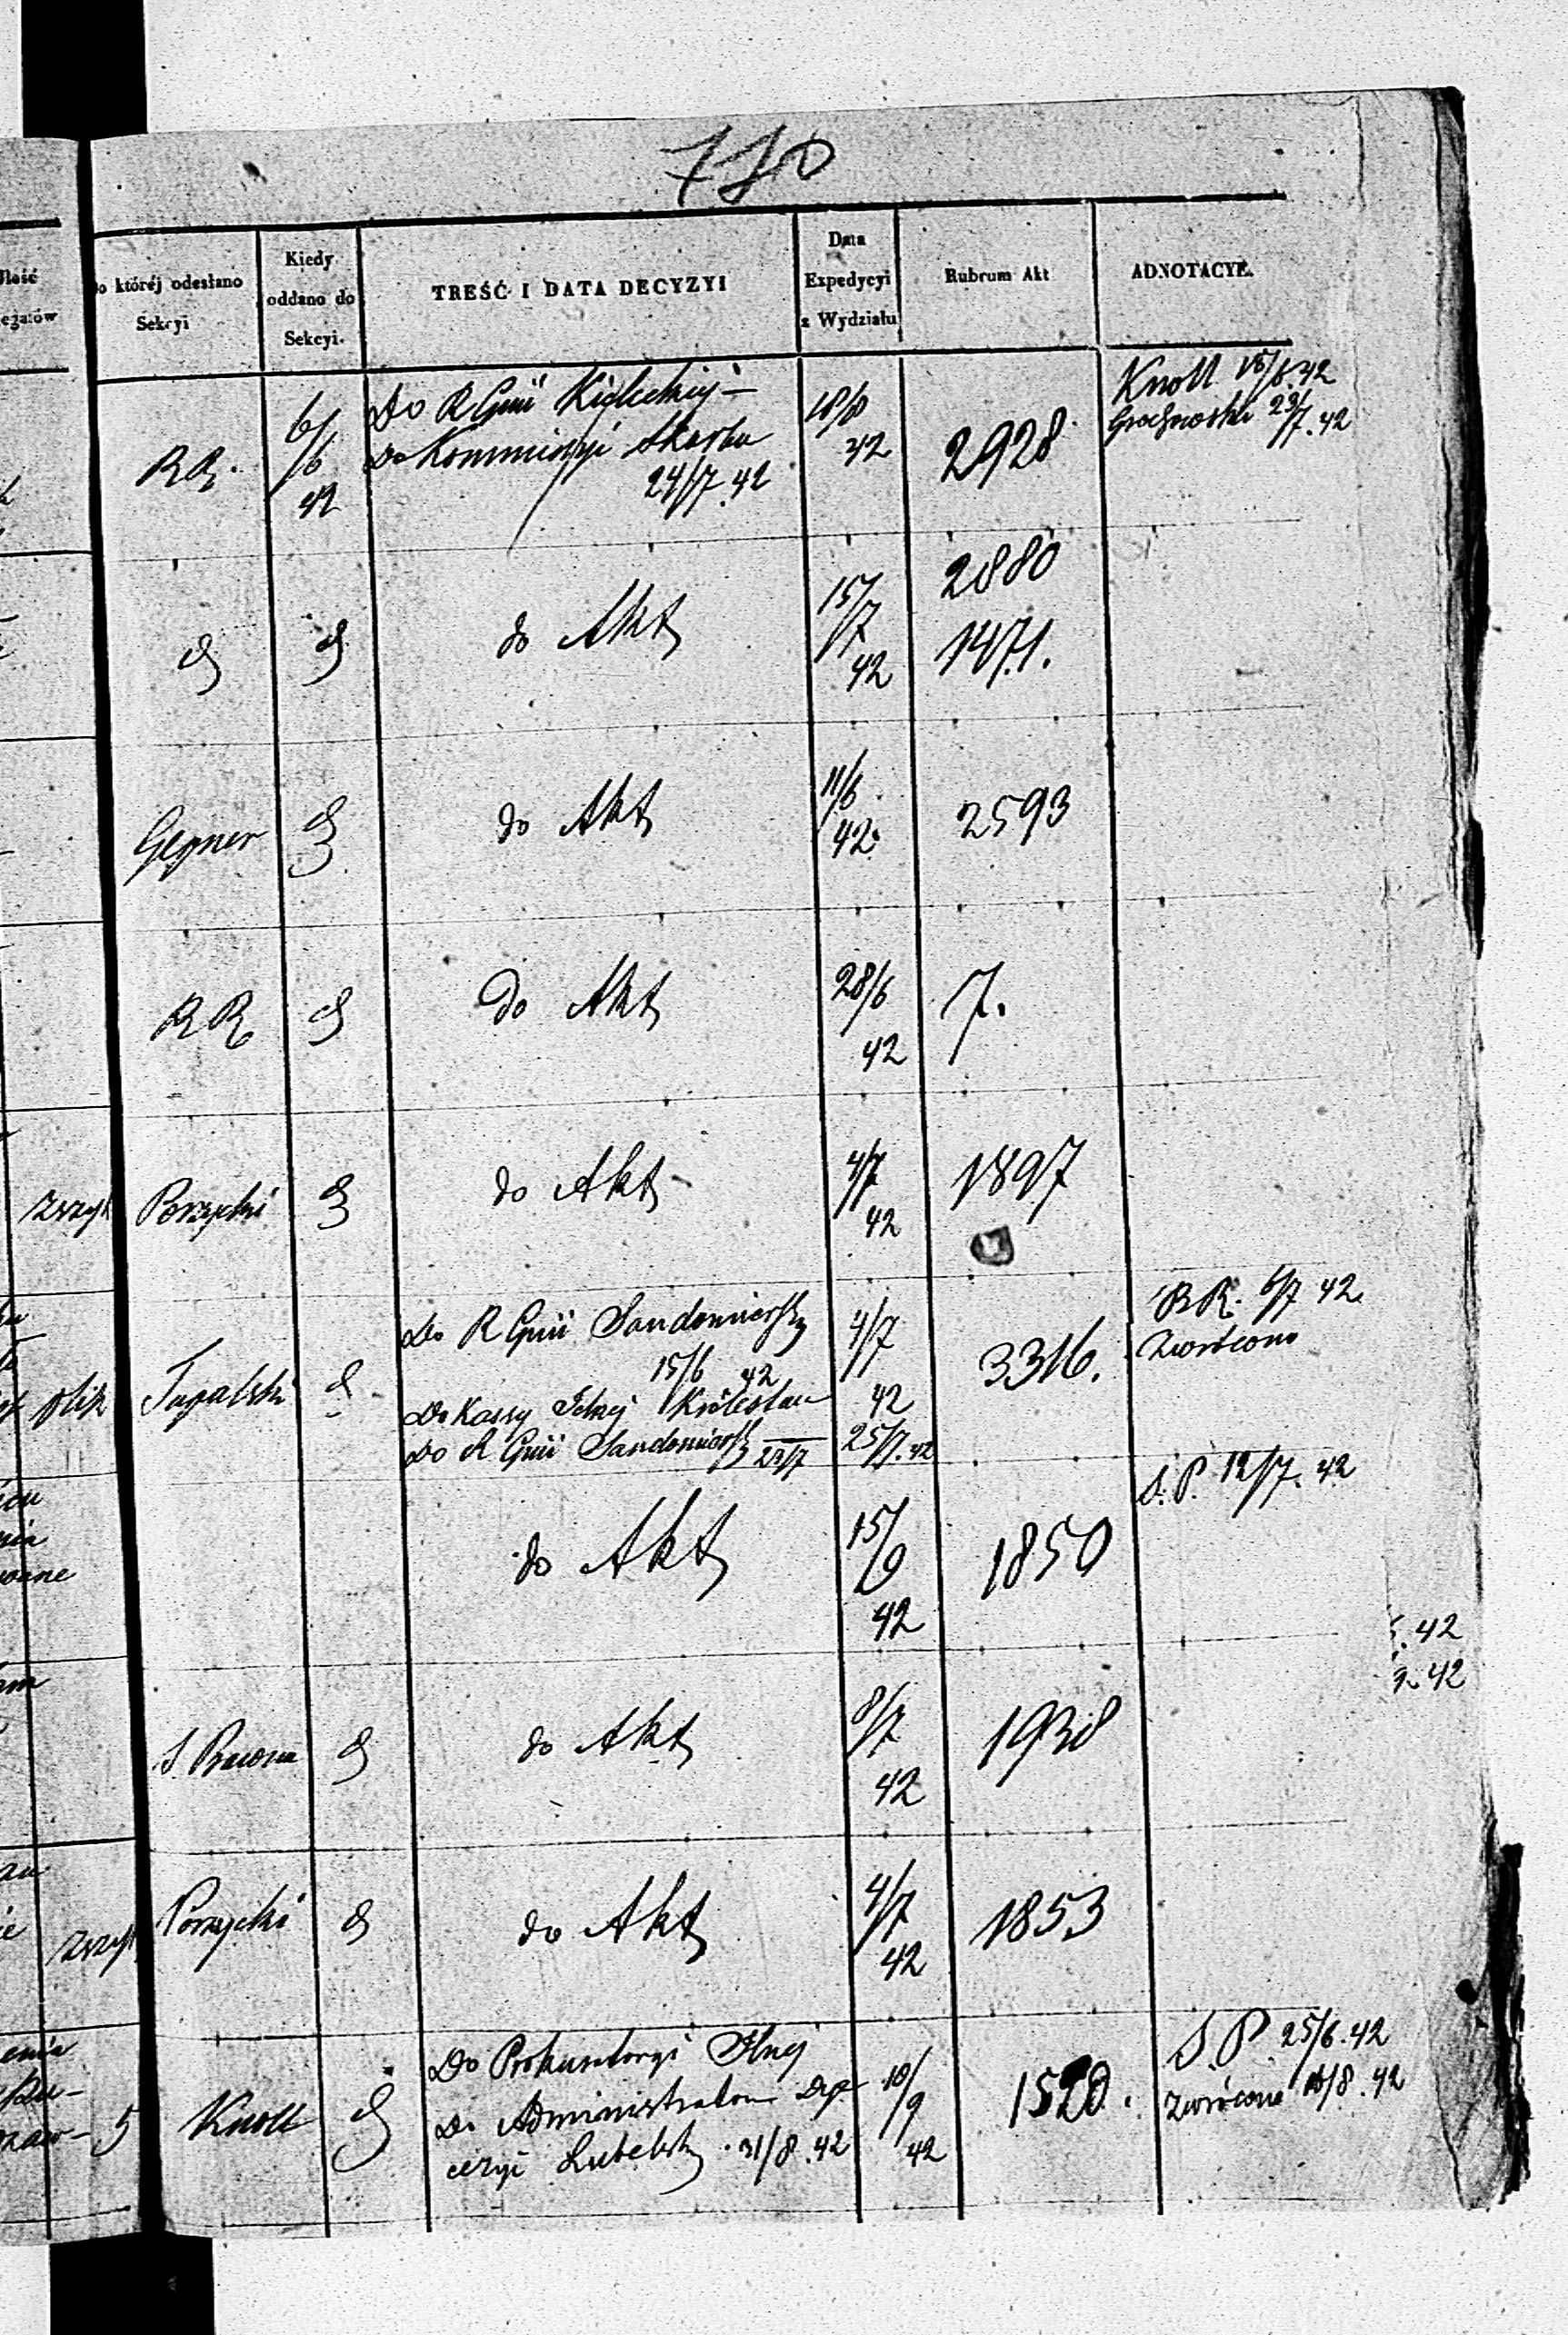 710
o któréj odesłano
Sekcyi
Kiedy
oddano do
Sekcyi.
TREŚĆ I DATA DECYZYI
Data
Expedycyi
z Wydziału
Rubrum Akt
ADNOTACYE.
RR.
6/6
42
Do R Gnii Kieleckiej
Do Kommissyi Skarbu
24/7.42
42
2928
Knoll 15/6.42
23/7.42
do Akt
15/7
42
2880
1471.
Gepner
do Akt
11/6
42.
2593
RR
do Akt
28/6
42
7.
zszyt
Porzycki
do Akt
4/7
42
1897
plik
Tupalski
Do R Gnii Sandomiersk
15/6 42
Do Kassy Królestwa
Do R Gnii Sandomiersk 22/7
4/7
42
25/7.42
3316.
RR. 6/7 42
Zwrócono
do Akt
15/9
42
1850
S.P. 12/7. 42
S Prawna
do Akt
8/7
42
1938
zszyt
Porzycki
do Akt
4/7
42
1853
5
Knoll
Do Prokuratoryi
Do Administratora
Lubelsk 31/8.42
10/9
42
1520.
S.P. 25/6.42
Zwrócono 10/8.42
. 42
. 42